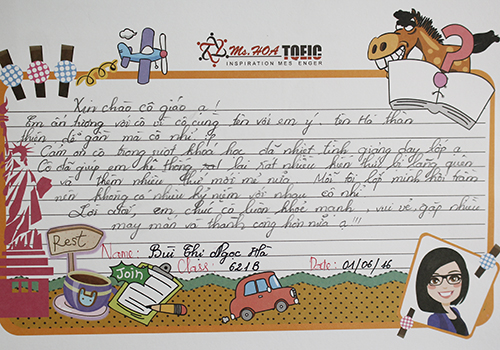 Ms.HOA TOEIC
INSPIRATION MESSENGER
Xin chào cô giáo ạ!
Em ấn tượng với cô vì cô cùng tên với em ý, tên Hà thân
thiện dễ gần mà cô nhỉ
Cảm ơn cô trong suốt khoá học đã nhiệt tình giảng dạy lớp ạ.
Cô đã giúp em hệ thống lại rất nhiều kiến thức bị lãng quên
và thêm nhiều thứ mới mẻ nữa. Mỗi tội lớp mình hơi trầm
nên không có nhiều kỷ niệm với nhau cô nhỉ.
Lời cuối, em chúc cô luôn khoẻ mạnh, vui vẻ, gặp nhiều
may mắn và thành công hơn nữa ạ!!!
Rest
Name: Bùi Thị Ngọc Hà
Join
Class 621B Date: 01/06/16